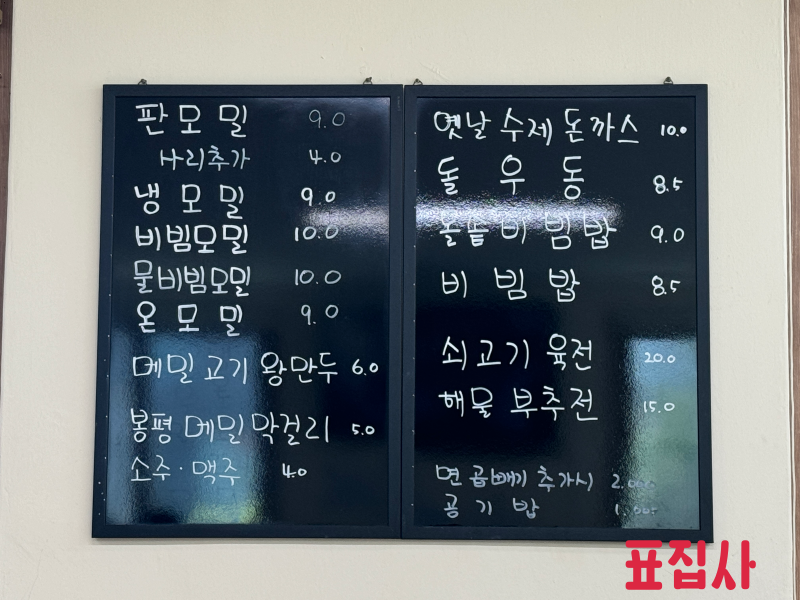 판모밀 9.0
사리추가 4.0
냉모밀 9.0
비빔모밀 10.0
물비빔모밀 10.0
온모밀 9.0
메밀고기 왕만두 6.0
봉평 메밀 막걸리 5.0
소주·맥주 4.0
옛날 수제 돈까스 10.0
돌우동 8.5
돌솥비빔밥 9.0
비빔밥 8.5
쇠고기 육전 20.0
해물 부추전 15.0
면 곱빼기 추가시 2.000
공기밥 1.000
표집사